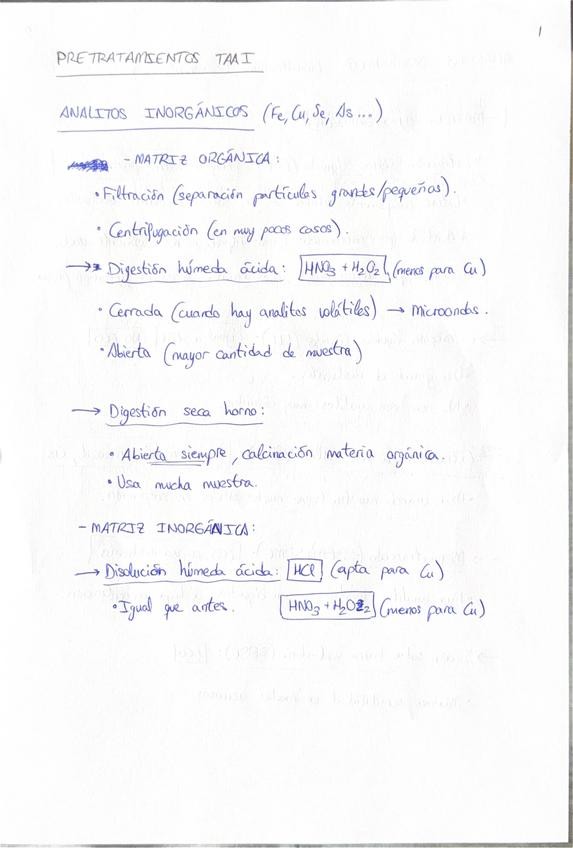 1
PRETRATAMIENTOS TAAI
ANALITOS INORGÁNICOS (Fe, Cu, Se, As...)
- MATRIZ ORGÁNICA:
• Filtración (separación partículas grandes/pequeñas).
• Centrifugación (en muy pocos casos).
→ Digestión húmeda ácida: HNO3 + H2O2 (menos para Cu)
• Cerrada (cuando hay analitos volátiles) → Microondas.
• Abierta (mayor cantidad de muestra)
→ Digestión seca horno:
• Abierta siempre, calcinación materia orgánica.
• Usa mucha muestra.
- MATRIZ INORGÁNICA:
→ Disolución húmeda ácida: HCl (apta para Cu)
• Igual que antes. HNO3 + H2O2 (menos para Cu)